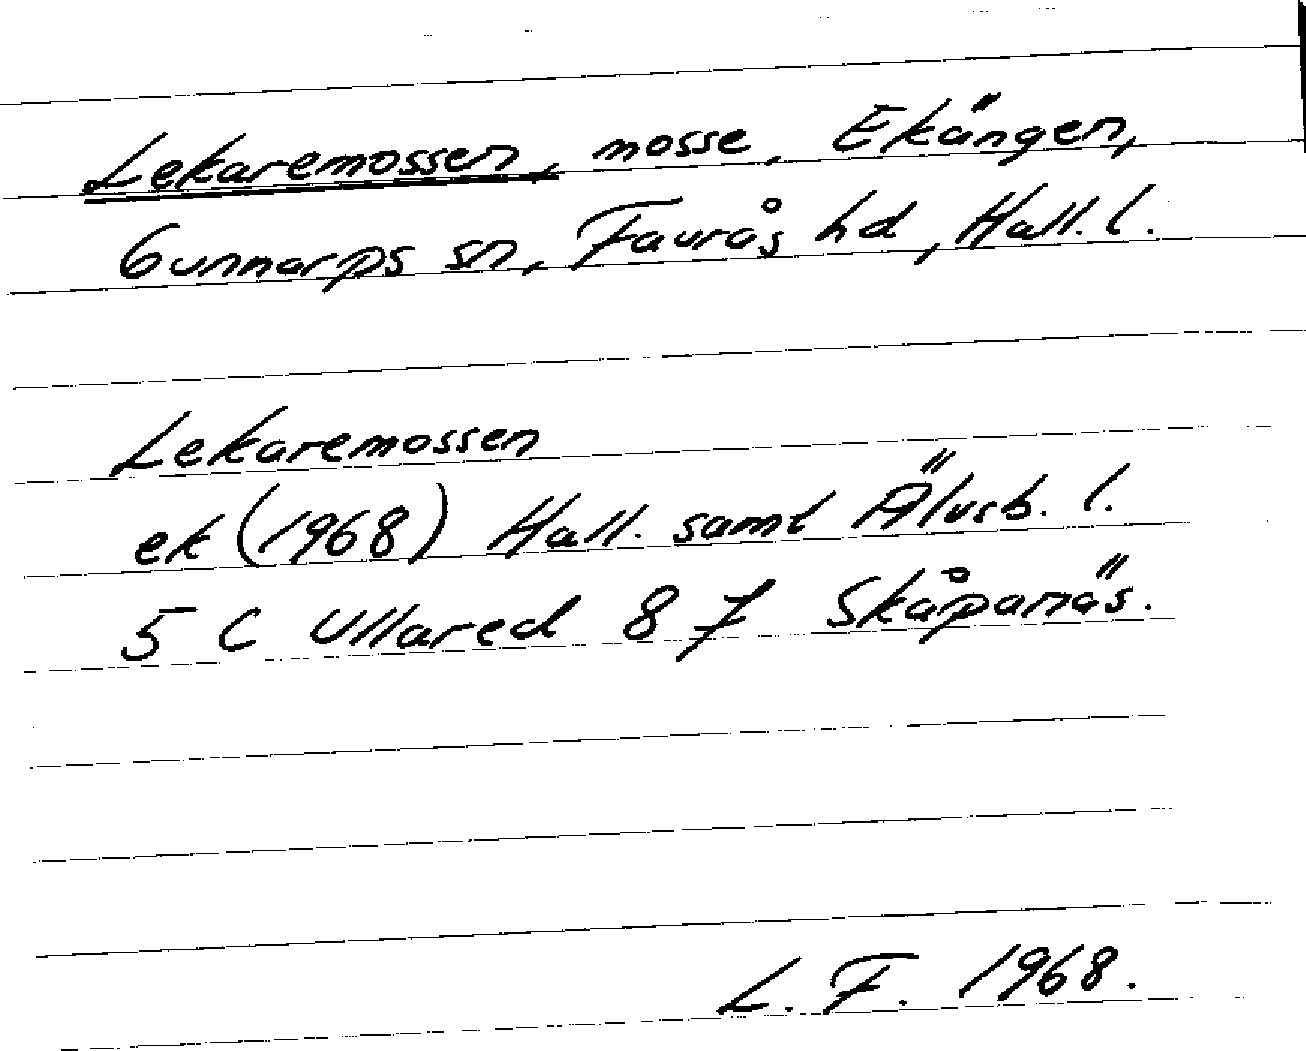 Lekaremossen, mosse, Ekängen,
Gunnarps sn, Faurås hd, Hall. l.
Lekaremossen
ek (1968) Hall. samt Älvsb. l.
5 C Ullared 8 f Skåpanäs.
L. F. 1968.